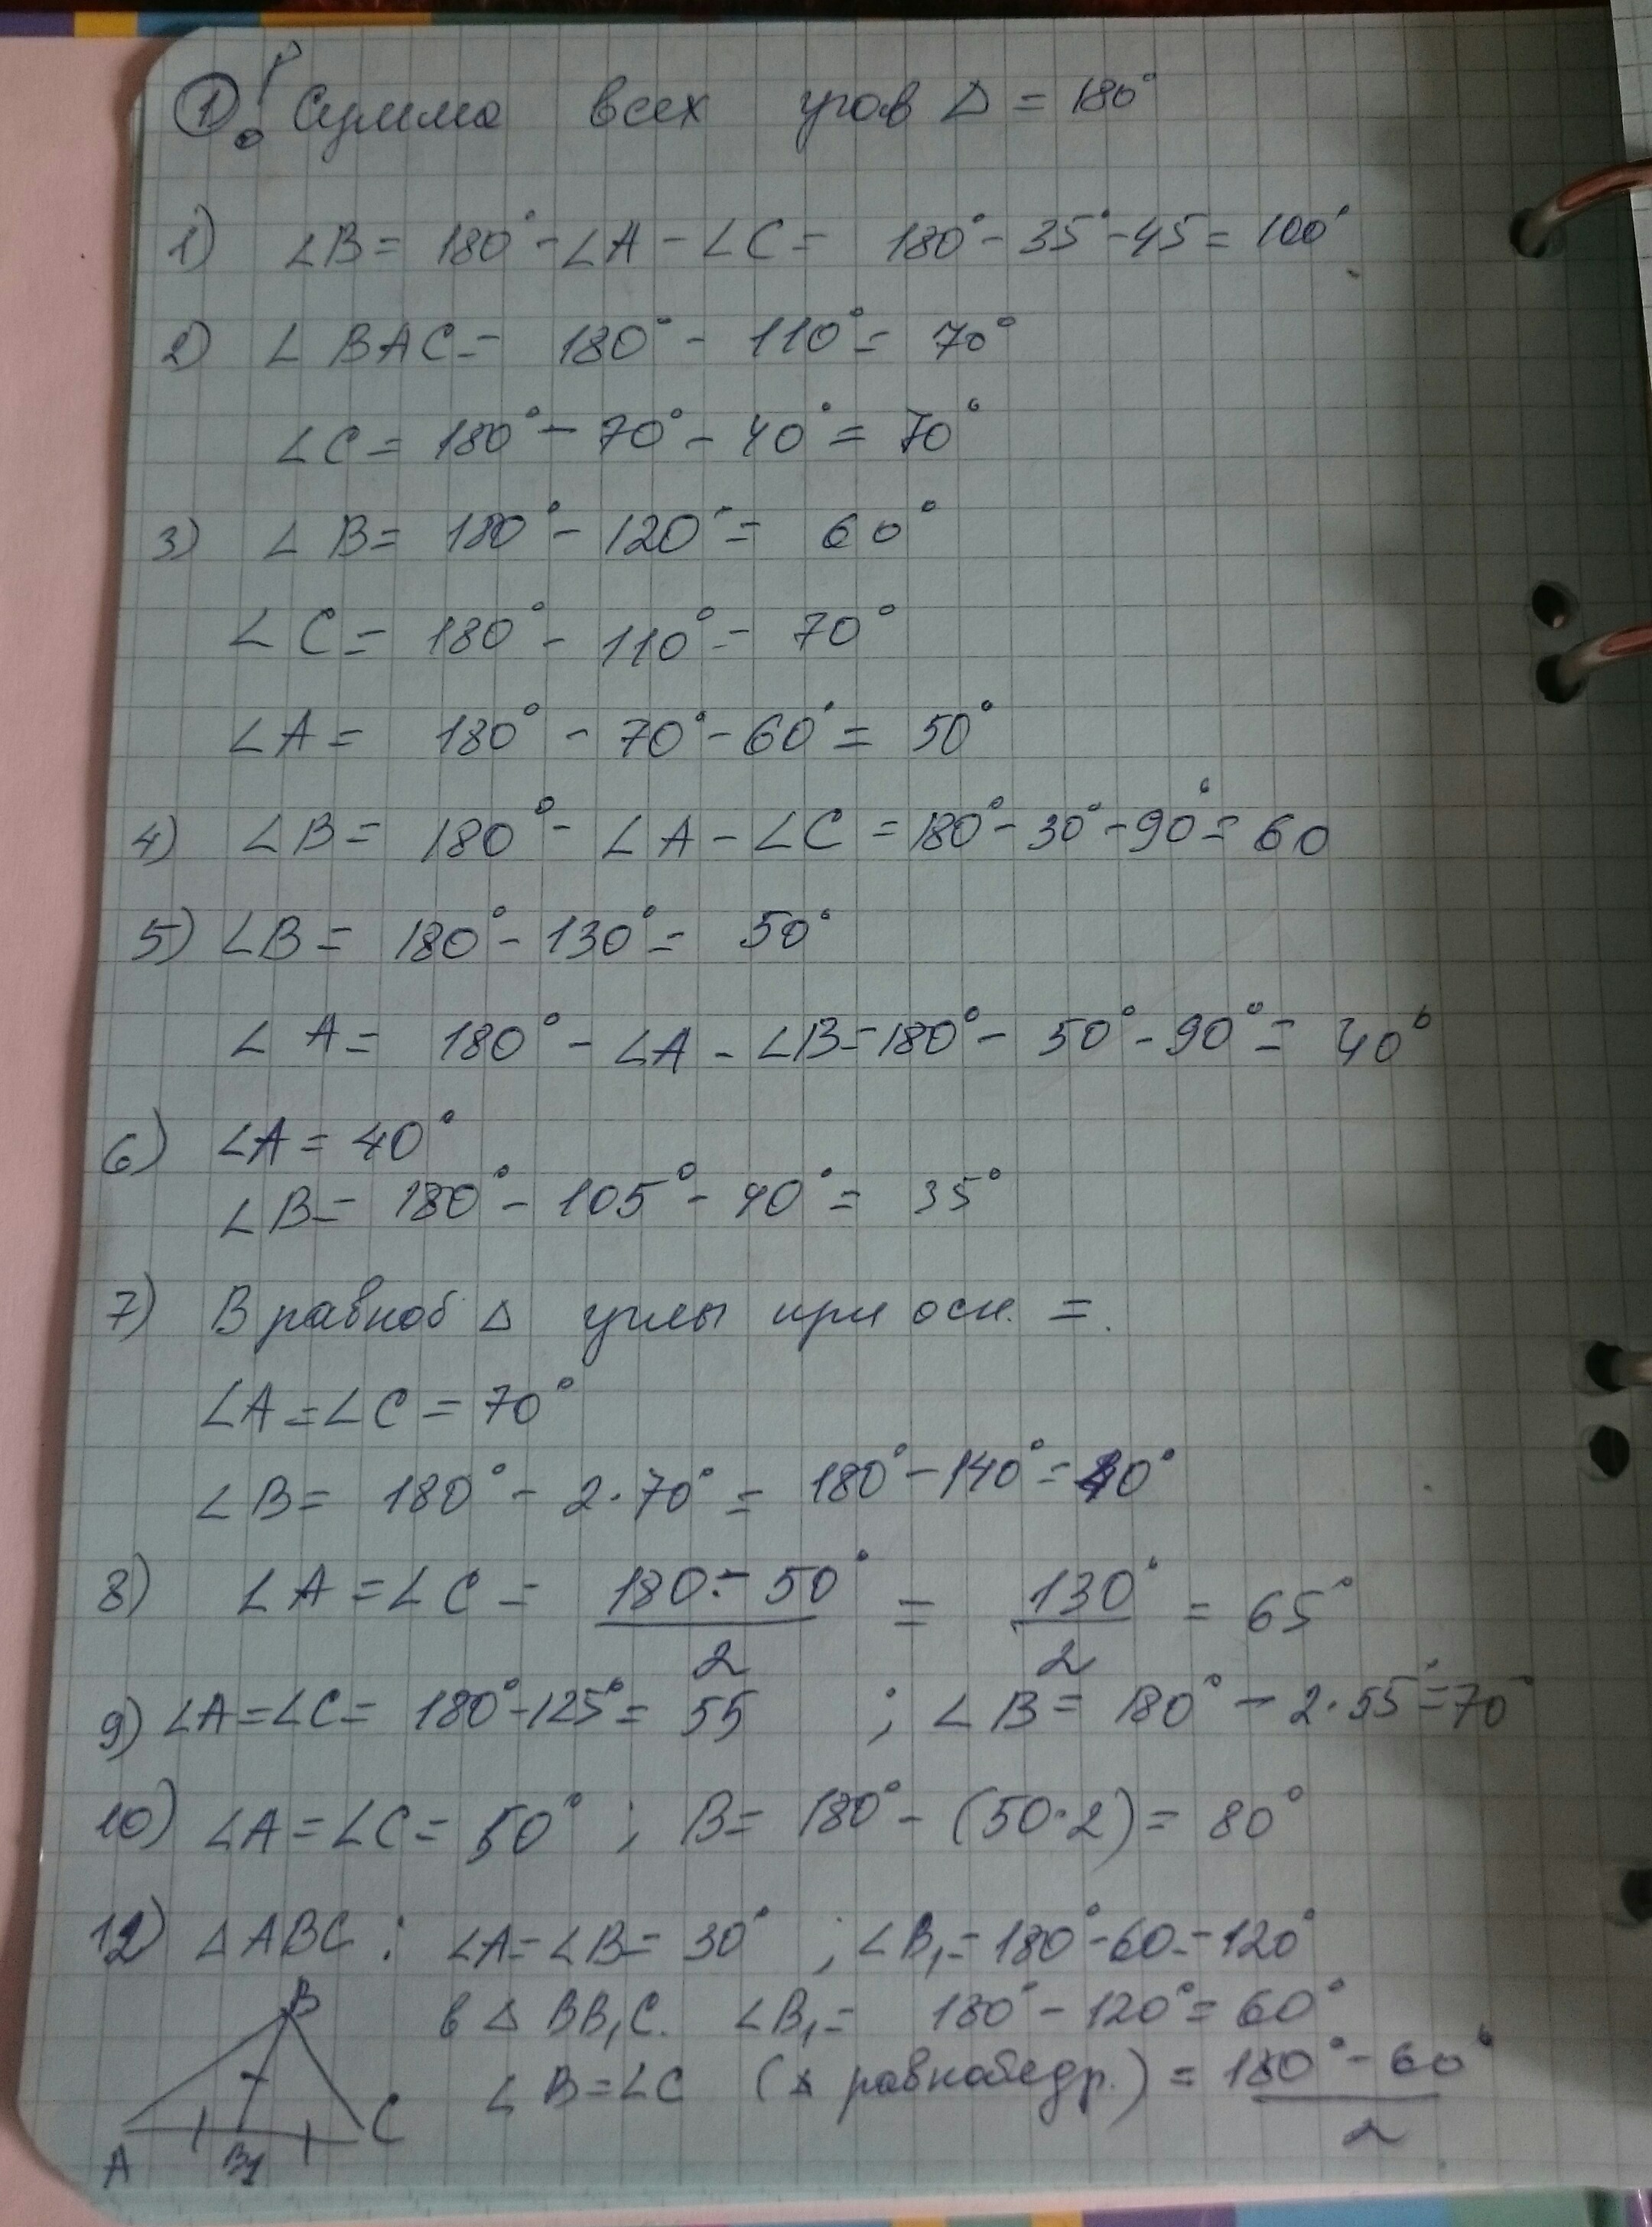 ① ! Сумма всех угов Δ = 180°
1) ∠B = 180° - ∠A - ∠C = 180° - 35° - 45 = 100°
2) ∠BAC = 180° - 110° = 70°
∠C = 180° - 70° - 40° = 70°
3) ∠B = 180° - 120° = 60°
∠C = 180° - 110° = 70°
∠A = 180° - 70° - 60° = 50°
4) ∠B = 180° - ∠A - ∠C = 180° - 30° - 90° = 60
5) ∠B = 180° - 130° = 50°
∠A = 180° - ∠A - ∠B = 180° - 50° - 90° = 40°
6) ∠A = 40°
∠B = 180° - 105° - 40° = 35°
7) В равноб Δ углы при осн. =.
∠A = ∠C = 70°
∠B = 180° - 2·70° = 180° - 140° = 40°
8) ∠A = ∠C = (180° - 50°)/2 = 130°/2 = 65°
9) ∠A = ∠C = 180° - 125° = 55 ; ∠B = 180° - 2·55° = 70°
10) ∠A = ∠C = 50° ; B = 180° - (50·2) = 80°
12) ΔABC : ∠A = ∠B = 30° ; ∠B₁ = 180° - 60 = 120°
в Δ BB₁C. ∠B₁ = 180° - 120° = 60°
∠B = ∠C (Δ равнобедр.) = (180° - 60°)/2
B
A B1 C